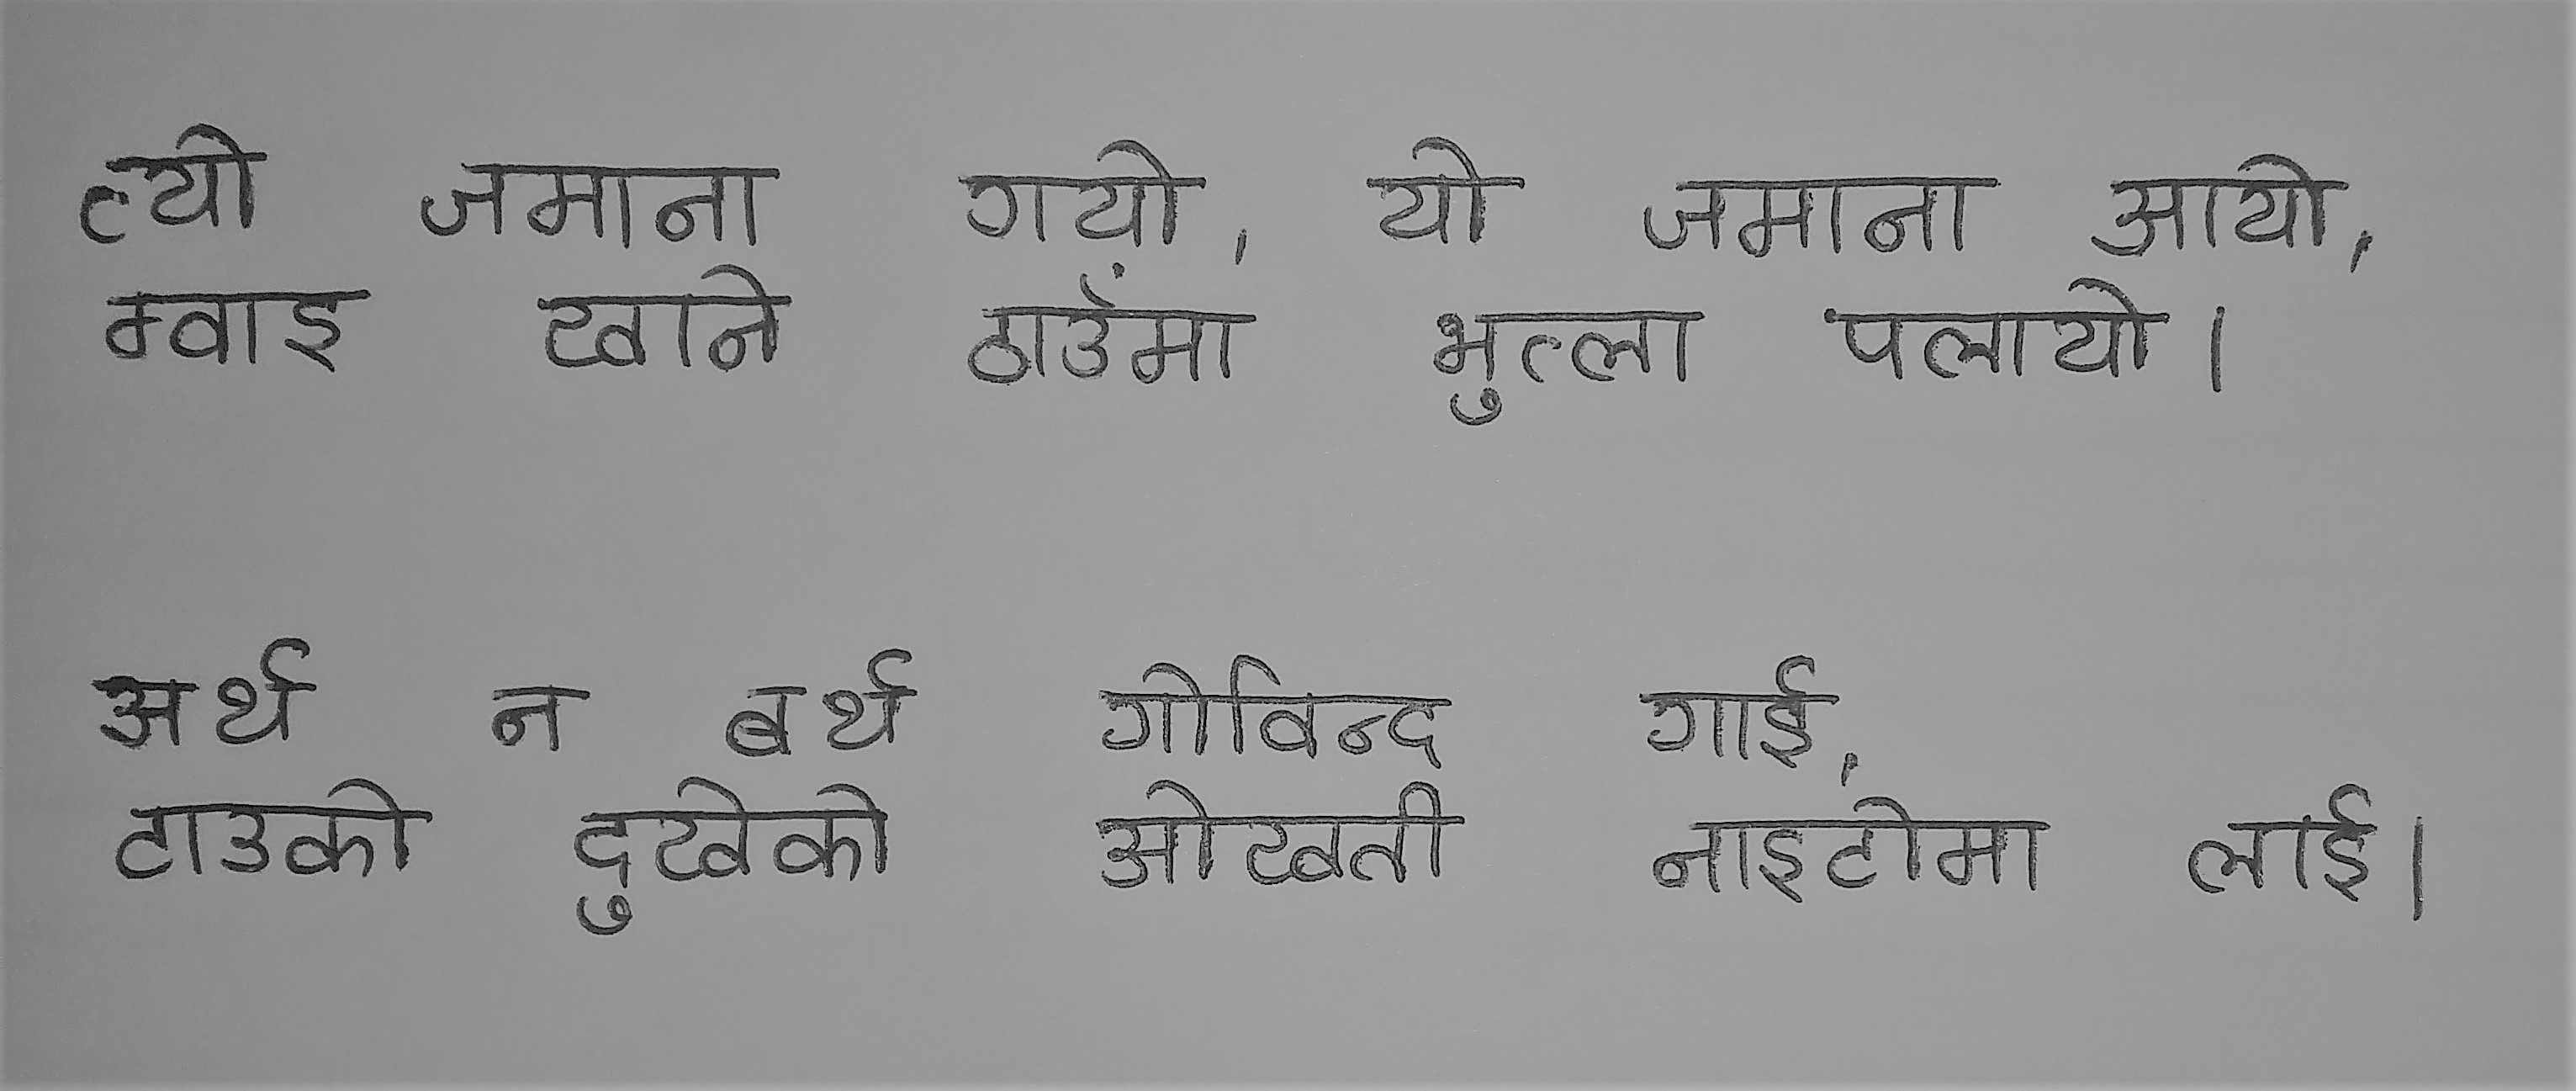 त्यो जमाना गयो, यो जमाना आयो,
म्वाइ खाने ठाउँमा भुत्ला पलायो।
अर्थ न बर्थ गोविन्द गाई,
टाउको दुखेको ओखती नाइटोमा लाई।